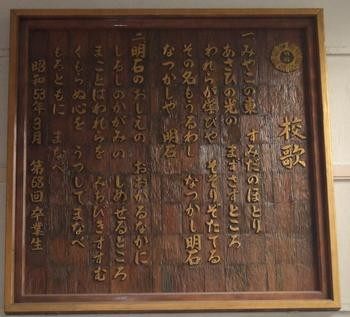 校歌
一みやこの東　すみだのほとり
あさひの光の　まずさすところ
われらが学びや　そそりそたてる
その名もうるわし　なつかし明石
なつかしや　明石
二明石のおしえの　おおかるなかに
しるしのかがみの　しめせるところ
まことはわれらを　みちびきすすむ
くもらぬ心を　うつしてまなべ
もろともに　まなべ
昭和53年3月　第68回卒業生